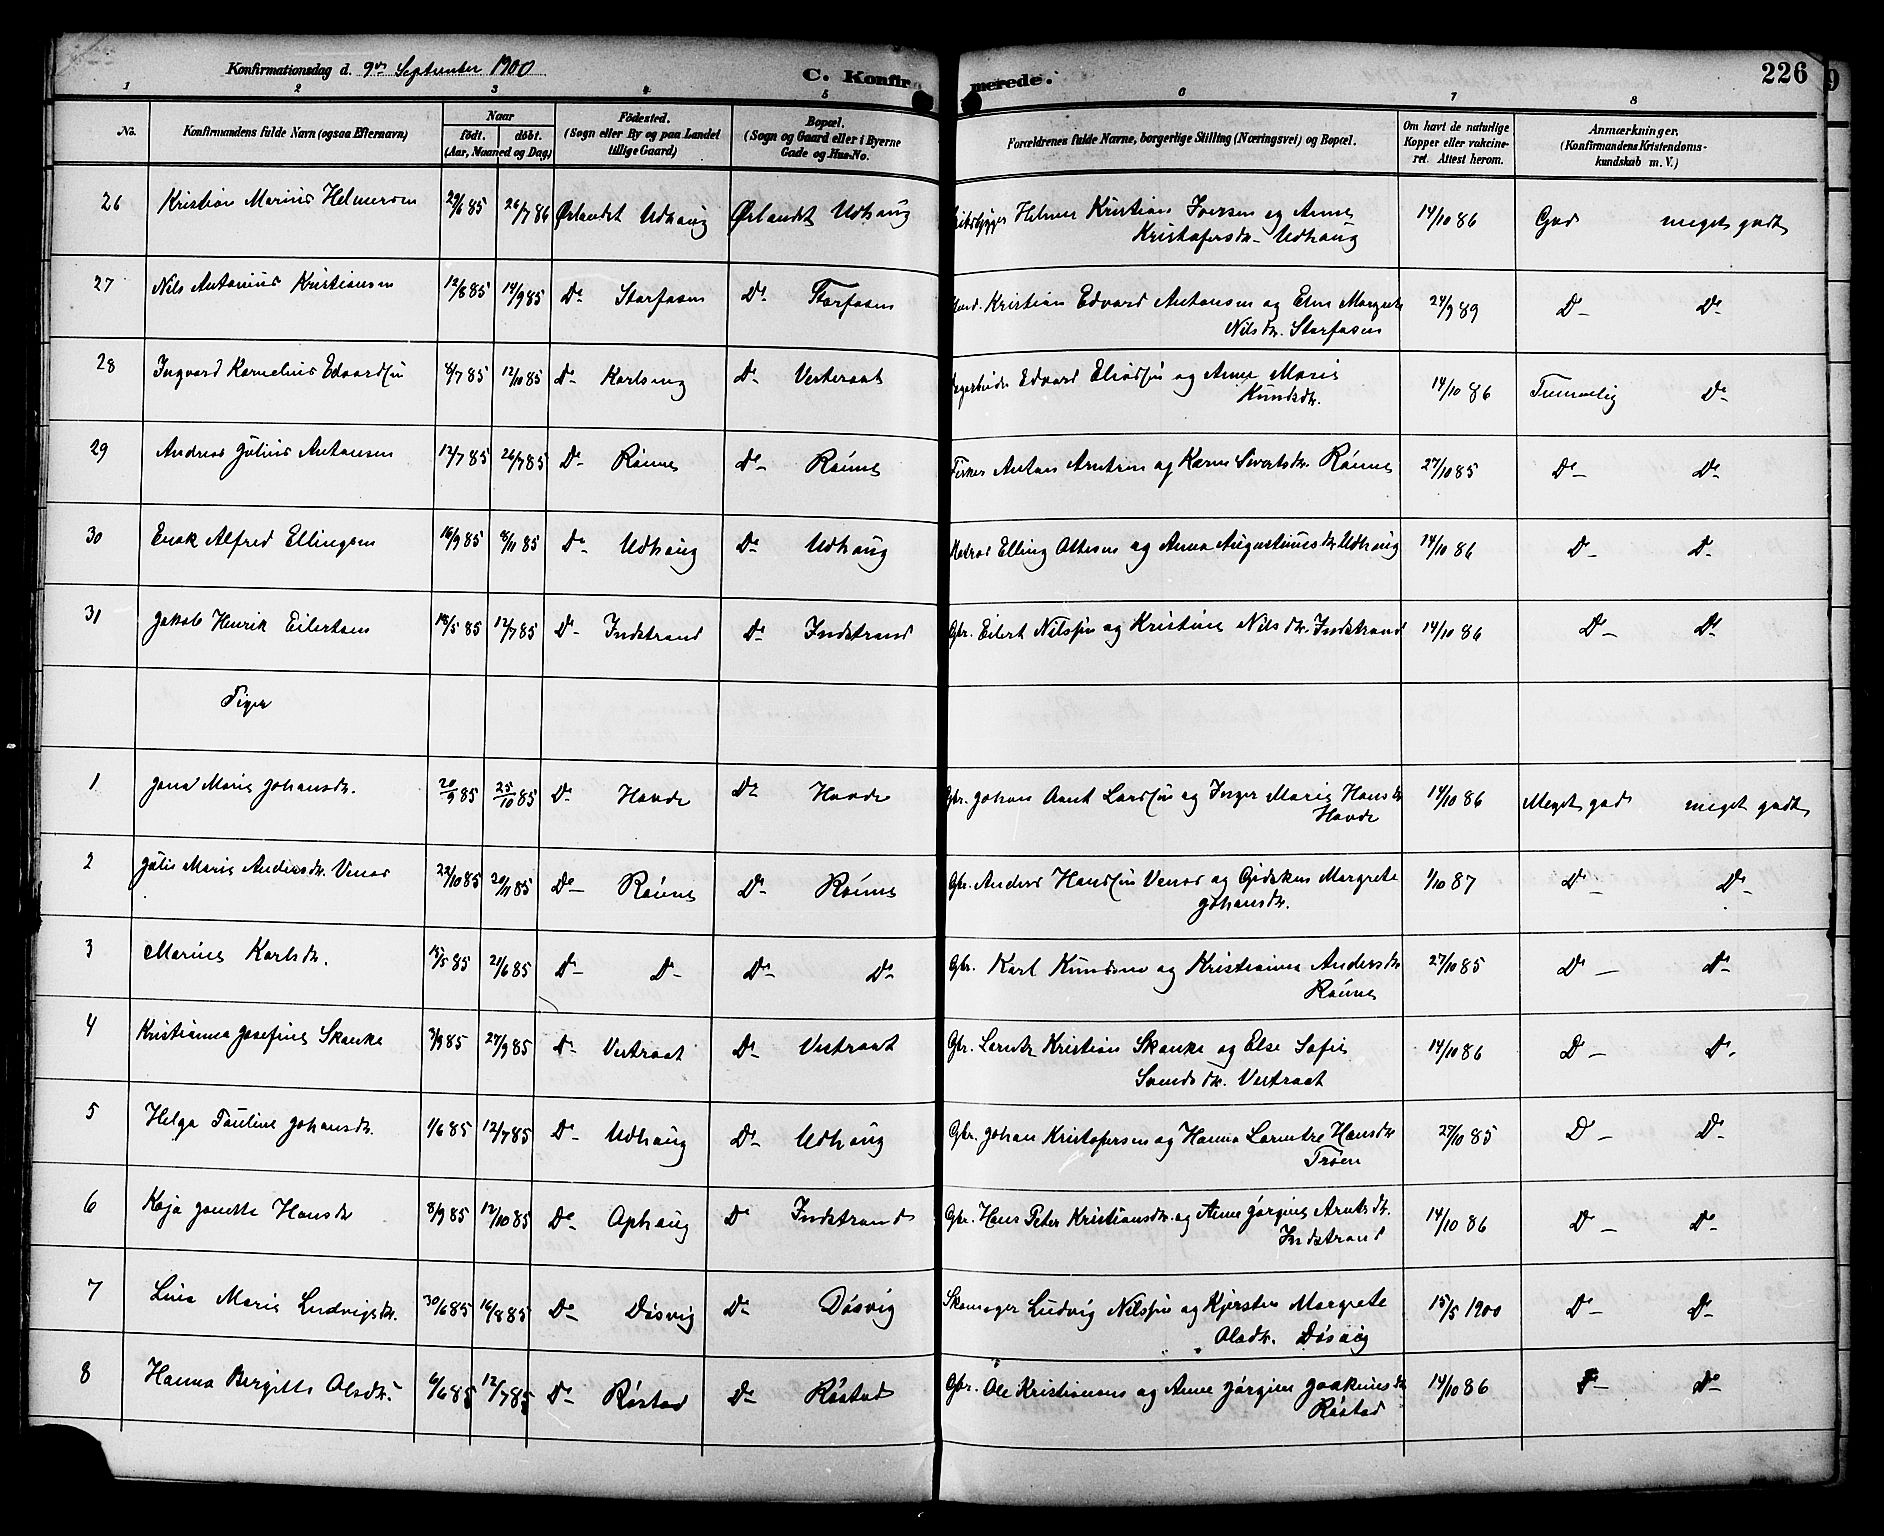 Konfirmationsdag d. 9de September 1900
C. Konfirmerede.
226
1 2 3 4 5 6 7 8
No.
Konfirmandens fulde Navn (ogsaa Efternavn)
Naar
födt. döbt.
(Aar, Maaned og Dag)
Födested.
(Sogn eller By og paa Landet
tillige Gaard)
Bopæl.
(Sogn og Gaard eller i Byerne
Gade og Hus-No.
Forældrenes fulde Navne, borgerlige Stilling (Næringsvei) og Bopæl.
Om havt de naturlige
Kopper eller vakcine-
ret. Attest herom.
Anmærkninger,
(Konfirmandens Kristendoms-
kundskab m. V.)
26 Kristian Marius Helmersen 29/6 85 26/7 86 Ørlandet Udhaug Ørlandet Udhaug Helmer Kristian Iversen og Anne 14/10 86 God meget godt
Kristofersdr. Udhaug
27 Nils Antonius Kristiansen 12/8 85 14/9 85 Do Storfosen Do Storfosen Kristian Edvard Antonsen og Elen Margrete 24/9 89 Do Do
Nilsdr. Storfosen
28 Ingvard Kornelius Edvardsen 8/7 85 12/10 85 Do Karlseng Do Vesteraat Edvard Eliassen og Anne Marie 14/10 86 Temmelig Do
Knudsdr.
29 Andreas Julius Antonsen 12/7 85 26/7 85 Do Rønne Do Rønne Fisker Anton Arntsen og Karen Sivertsdr. Rønne 27/10 85 Do Do
30 Enok Alfred Ellingsen 16/9 85 8/11 85 Do Udhaug Do Udhaug Matros Elling Ottesen og Anna Augustinusdr. Udhaug 14/10 86 Do Do
31 Jakob Henrik Eilertsen 18/5 85 12/7 85 Do Indstrand Do Indstrand Gbr. Eilert Nilssen og Kristine Nilsdr. Indstrand 14/10 86 Do Do
Piger
1 Jona Marie Johansdr. 20/9 85 25/10 85 Do Hovde Do Hovde Gbr. Johan Arnt Larssen og Inger Marie Hansdr 14/10 86 Meget god meget godt
Hovde
2 Julie Marie Andersdr. Venos 22/10 85 20/11 85 Do Rønne Do Rønne Gbr. Anders Hanssen Venos og Gidsken Margrete 1/10 87 Do Do
Johansdr.
3 Marine Karlsdr. 15/5 85 21/6 85 Do Do Do Do Gbr. Karl Knudsen og Kristianna Andersdr 27/10 85 Do Do
Rønne
4 Kristianna Josefine Skanke 3/9 85 27/9 85 Do Vestraat Do Vestraat Gbr. Lorents Kristian Skanke og Else Sofie 14/10 86 Do Do
Vestraat
5 Helga Pauline Johansdr. 1/6 85 12/7 85 Do Udhaug Do Udhaug Gbr. Johan Kristofersen og Hanna Lorntze Hansdr 27/10 85 Do Do
Trøen
6 Kaja Jonette Hansdr 8/9 85 12/10 85 Do Ophaug Do Indstrand Gbr. Hans Peter Kristiansdr. og Anne Jørgine Arntsdr. 14/10 86 Do Do
Indstrand
7 Lina Marie Ludvigsdr. 30/6 85 16/8 85 Do Døsvig Do Døsvig Skomager Ludvig Nilssen og Kjersten Margrete 15/5 1900 Do Do
Olsdr. Døsvig
8 Hanna Bergitte Olsdr. 6/6 85 12/7 85 Do Røstad Do Røstad Gbr. Ole Kristiansen og Anne Jørgine Joakimsdr 14/10 86 Do Do
Røstad